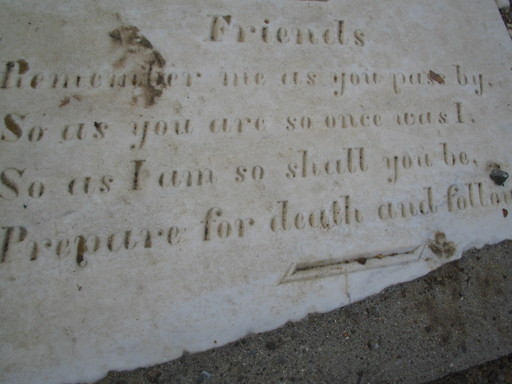 Friends
Remember me as you pass by,
So as you are so once was I.
So as I am so shall you be,
Prepare for death and follow